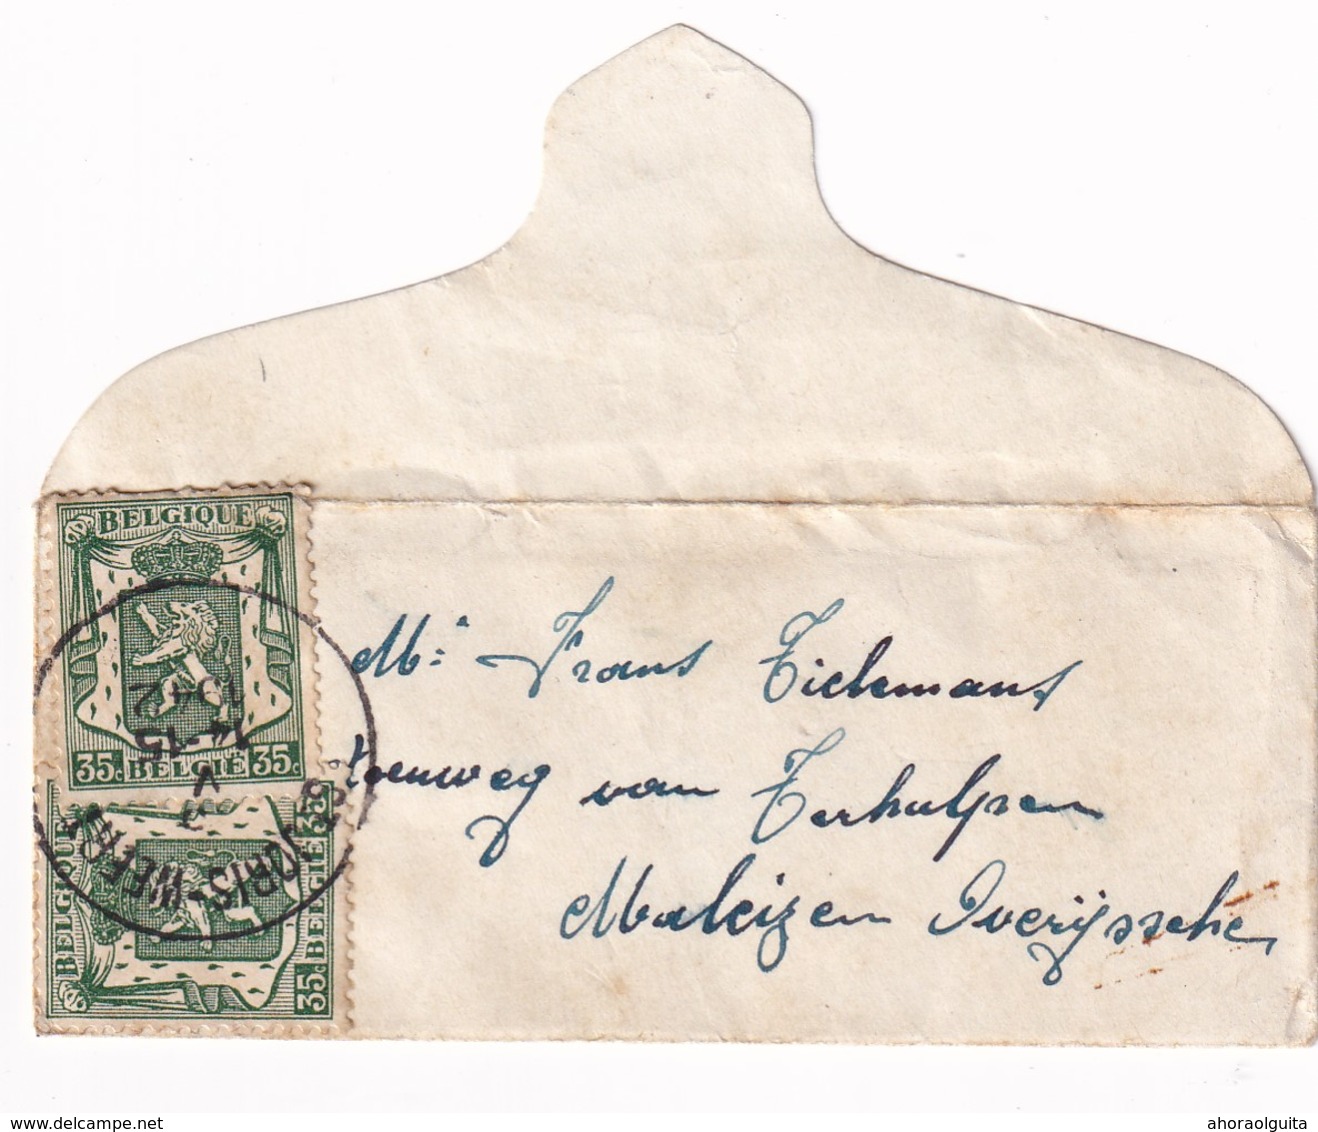 BELGIQUE
35c BELGIË 35c
BELGIQUE
35c BELGIË 35c
JORIS-WEERT
14-15
V
1942
Mr. Frans Tielemans
steenweg van Terhulpsen
Maleizen Overijssche
www.delcampe.net
ahoraolguita